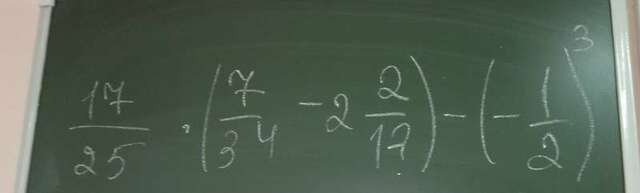 17/25 · (7/34 - 2 2/17) - (-1/2)³